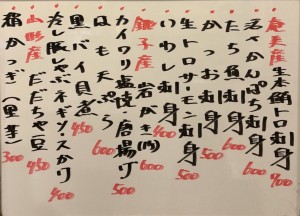 奄美産 生本鮪トロ刺身 900
活〆かんぱち刺身 600
たち魚刺身 600
かつお刺身 500
生トロサーモン刺身 500
いわし刺身 400
銚子産 岩がき 600
カイワリ塩焼・唐揚げ 500
はも天ぷら 600
黒バイ貝煮 450
冷し豚しゃぶネギソースかけ 400
山形産 だだちゃ豆 450
絹かつぎ(里芋) 300